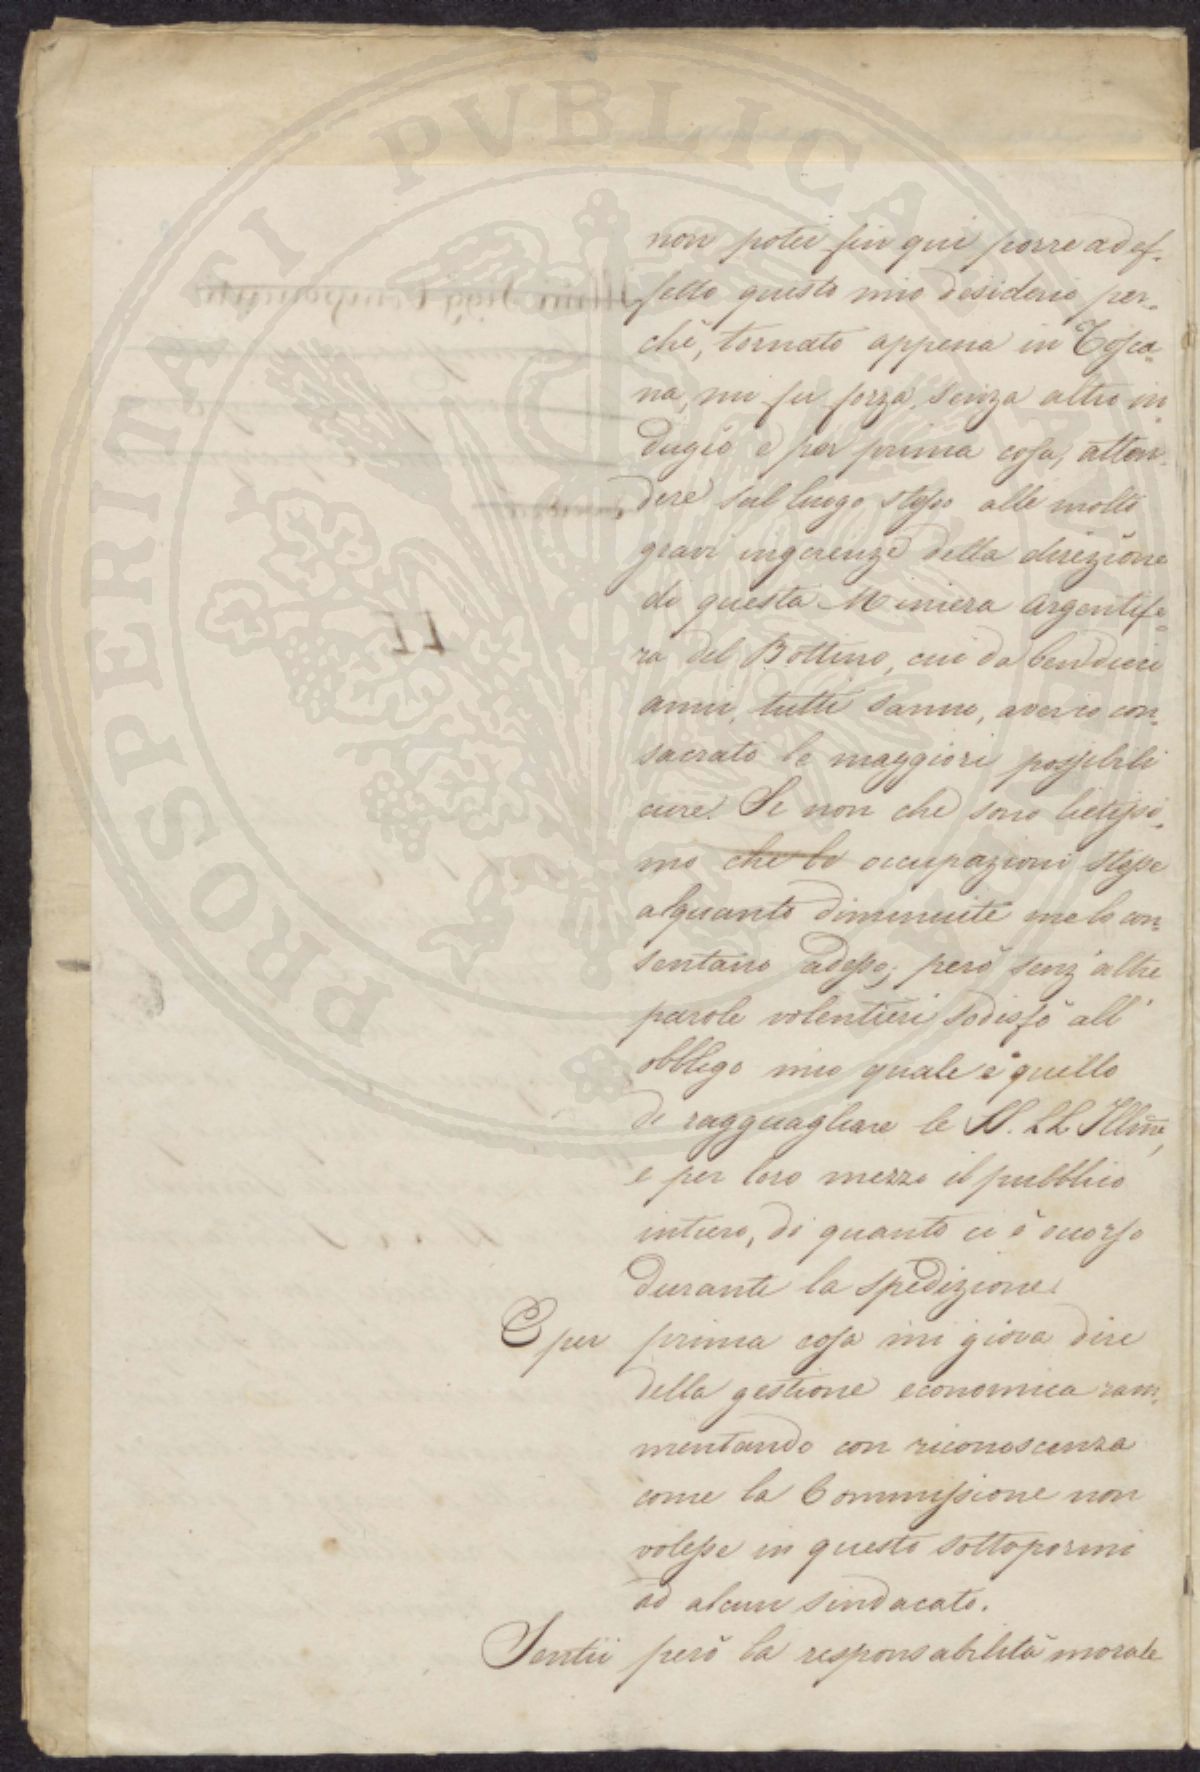 PROSPERITATI PVBLICAE
non potei fin qui porre ad ef-
fetto questo mio desiderio per-
chè, tornato appena in Tosca-
na, mi fu forza, senza altro in-
dugio e per prima cosa, atten-
dere sul luogo stesso alle molte
gravi ingerenze della direzione
di questa Miniera Argentife-
ra del Bottino, cui da ben dieci
anni, tutti sanno, aver io con-
sacrato le maggiori possibili
cure. Se non che sono lietissi-
mo che le occupazioni stesse
alquanto diminuite me lo con-
sentano adesso; però senz'altre
parole volentieri sodisfò all'
obbligo mio quale è quello
di ragguagliare le SS. LL. Illme,
e per loro mezzo il pubblico
intiero, di quanto ci è occorso
durante la spedizione.
E per prima cosa mi giova dire
della gestione economica ram-
mentando con riconoscenza
come la Commissione non
volesse in questo sottopormi
ad alcun sindacato.
Sentii però la responsabilità morale